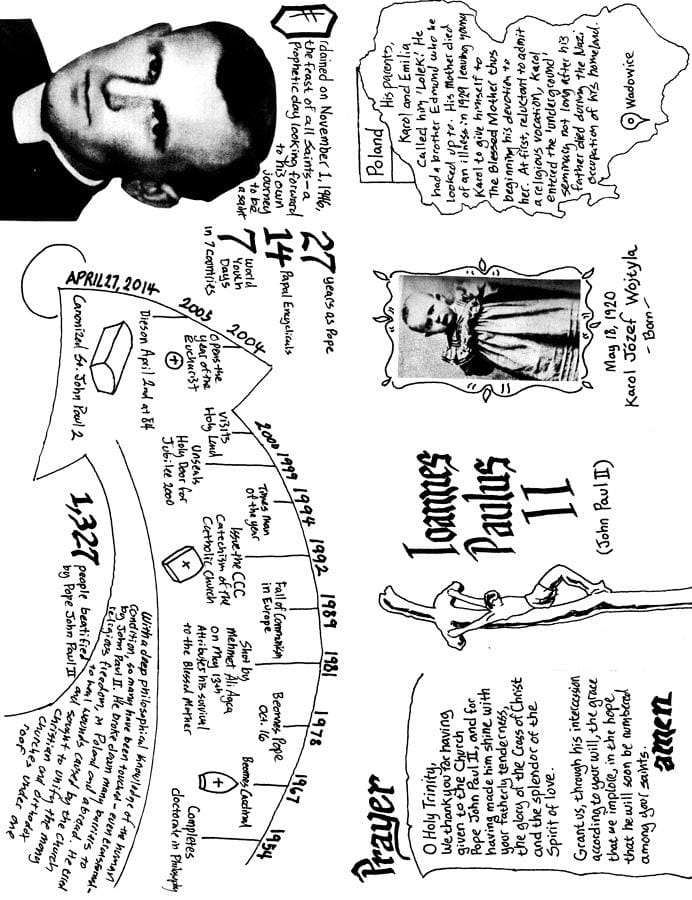 Prayer
O Holy Trinity,
We thank you for having
given to the Church
Pope John Paul II, and for
having made him shine with
your fatherly tenderness,
the glory of the Cross of Christ
and the splendor of the
Spirit of love.
Grant us, through his intercession
according to your will, the grace
that we implore, in the hope
that he will soon be numbered
among your saints.
amen
Ioannes
Paulus
II
(John Paul II)
May 18, 1920
Karol Józef Wojtyla
- Born -
Poland
His parents,
Karol and Emilia
called him 'Lolek'. He
had a brother Edmond who he
looked up to. His Mother died
of an illness in 1929 leaving young
Karol to give himself to
The Blessed Mother thus
beginning his devotion to
her. At first, reluctant to admit
a religious vocation, Karol
entered the 'underground'
seminary, not long after his
father died during the Nazi
occupation of his homeland.
Wadowice
rdained on November 1, 1946,
the feast of all Saints - a
Prophetic day looking forward
to his own
Journey
to be
a saint
27 years as Pope
14 Papal Encyclicals
7 World
Youth
Days
in 7 countries
1954
Completes
doctorate in Philosophy
1967
Becomes Cardinal
1978
Becomes Pope
Oct. 16
1981
Shot by
Mehmet Ali Agca
on May 13th
Attributes his survival
to the Blessed Mother
1989
Fall of Communism
in Europe
1992
Issue the CCC
Catechism of the
Catholic Church
1994
Times man
of the year
1999
Unseals
Holy Door for
Jubilee 2000
2000
Visits
Holy Land
2004
Opens the
Year of the
Eucharist
2005
Dies on April 2nd at 84
APRIL 27, 2014
Canonized St. John Paul 2
1,327
people beatified
by Pope John Paul II
With a deep philosophical knowledge of the human
condition, so many have been touched
by John Paul II. He broke down many barriers to
religious freedom in Poland and abroad. He tried
to heal wounds caused by the Church
and sought to unify the many
Christian and orthodox
churches under one
roof